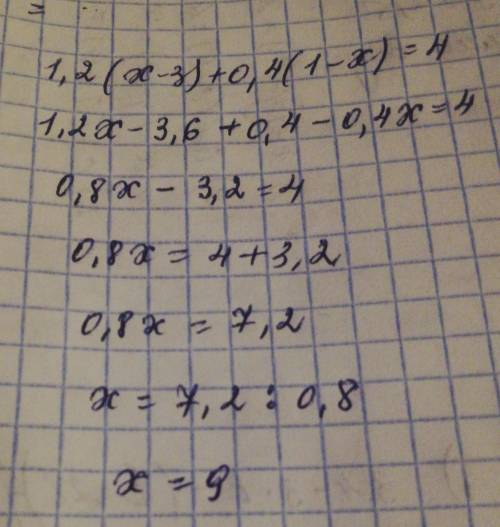 =
1,2(x-3)+0,4(1-x)=4
1,2x-3,6+0,4-0,4x=4
0,8x-3,2=4
0,8x=4+3,2
0,8x=7,2
x=7,2:0,8
x=9